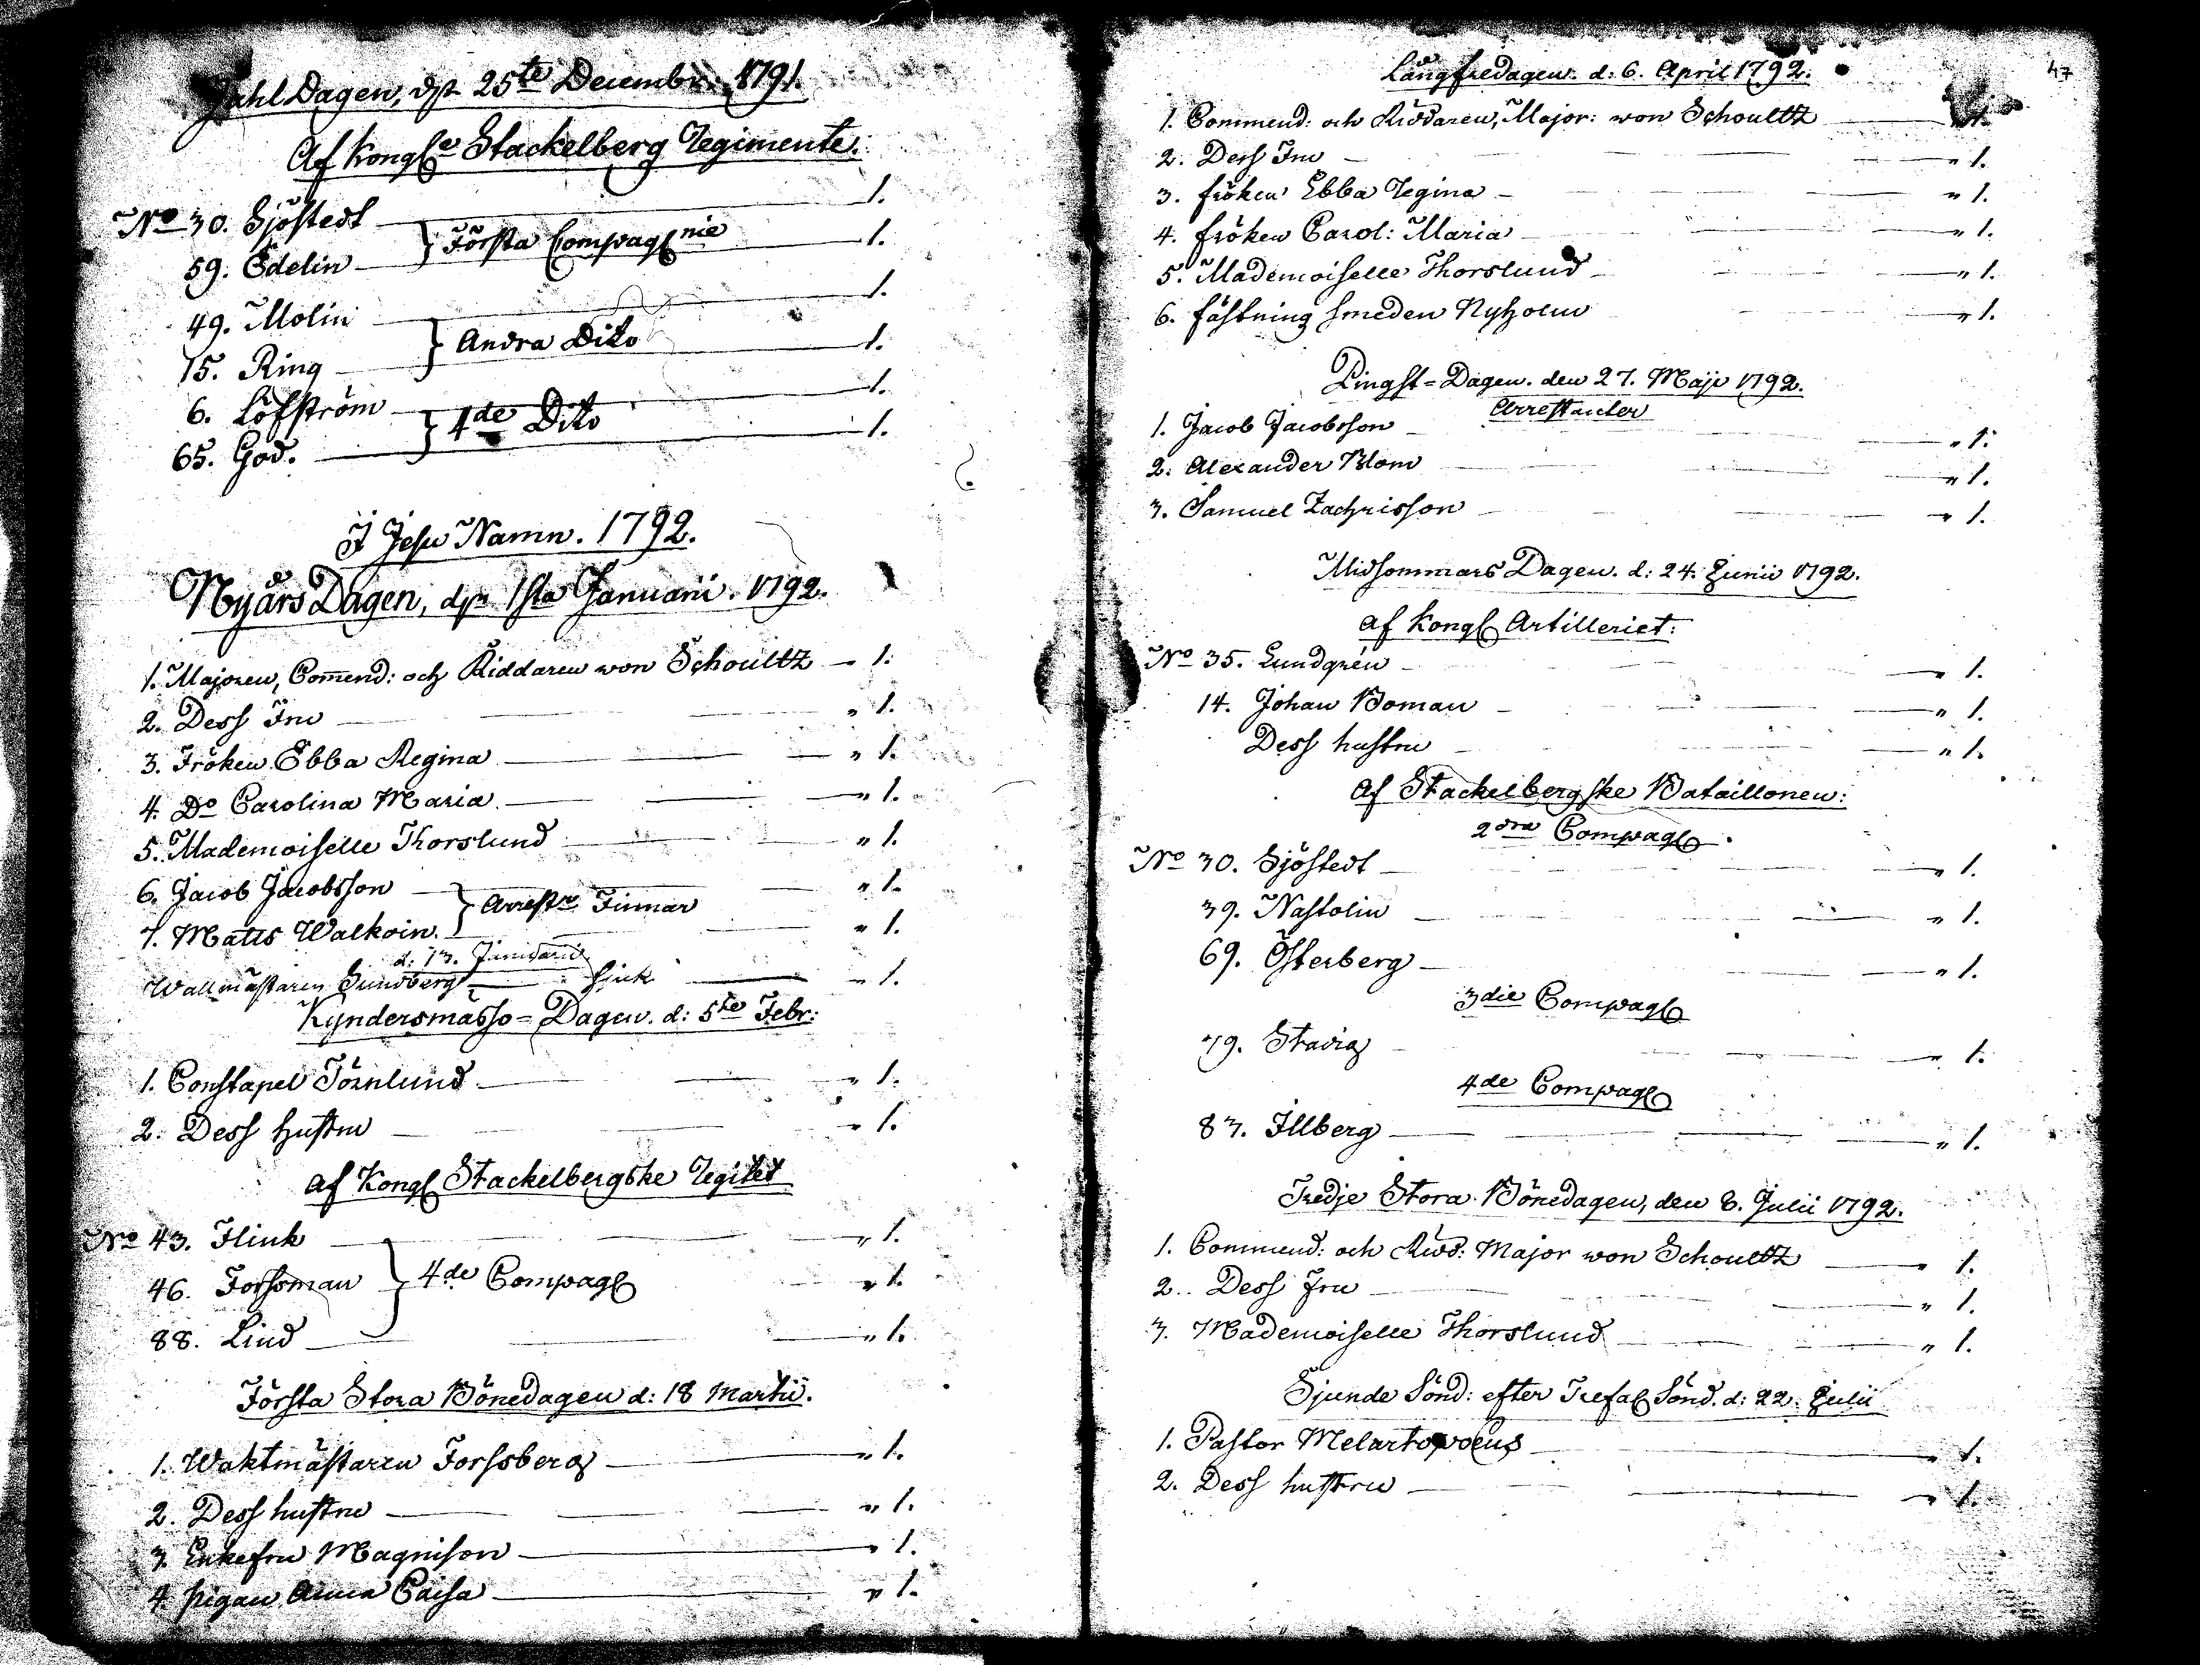 Jahl Dagen, dn 25te Decembr: 1791.
Af Kongle Stackelberg Regimente.
No 30. Sjöstedt 1.
Första Compagnie
59. Edelin 1.
49. Molin 1.
Andra Dito
15. Ring 1.
6. Löfström 1.
4de Dito
65. God. 1.
I Jesu Namn. 1792.
Nyårs Dagen, dn 1sta Januarii. 1792.
1. Majoren, Comend: och Riddaren von Schoultz 1.
2. Dess Fru " 1.
3. Fröken Ebba Regina " 1.
4. Do Carolina Maria " 1.
5. Mademoiselle Thorslund " 1.
6. Jacob Jacobsson " 1.
Arrestr Finnar
7. Matts Walkoin. " 1.
d: 13. Januarii
Wallmästaren Sundberg Siuk 1.
Kyndersmässo=Dagen. d: 5te Febr:
1. Constapel Törnlund " 1.
2. Dess Hustru " 1.
af Kongl Stackelbergske Regitet
No 43. Flink " 1.
46. Forssman 4de Compagl " 1.
88. Lind " 1.
Första Stora Bönedagen d: 18 Martii.
1. Waktmästaren Forssberg " 1.
2. Dess hustru " 1.
3. Enkefru Magnison " 1.
4. pigan Anna Caisa " 1.
47
Långfredagen. d: 6. April 1792.
1. Commend: och Riddaren, Major: von Schoultz 1.
2. Dess Fru " 1.
3. fröken Ebba Regina " 1.
4. fröken Carol: Maria " 1.
5. Mademoiselle Thorslund " 1.
6. fästning smeden Nyholm " 1.
Pingst=Dagen. den 27. Maji 1792.
Arrestanter
1. Jacob Jacobsson " 1.
2. Alexander Blom " 1.
3. Samuel Zachrisson " 1.
Midsommars Dagen. d: 24. Junii 1792.
af Kongl Artilleriet:
No 35. Lundgrén " 1.
14. Johan Boman " 1.
Dess hustru " 1.
Af Stackelbergske Bataillonen:
2dra Compagl
No 30. Sjöstedt " 1.
39. Nastolin " 1.
69. Österberg " 1.
3die Compagl
79. Stavig " 1.
4de Compagl
83. Illberg " 1.
Tredje Stora Bönedagen, den 8. Julii 1792.
1. Commend: och Ridd: Major von Schoultz " 1.
2. Dess Fru " 1.
3. Mademoiselle Thorslund " 1.
Sjunde Sönd: efter Trefal Sönd. d: 22. Julii
1. Pastor " 1.
2. Dess hustru " 1.